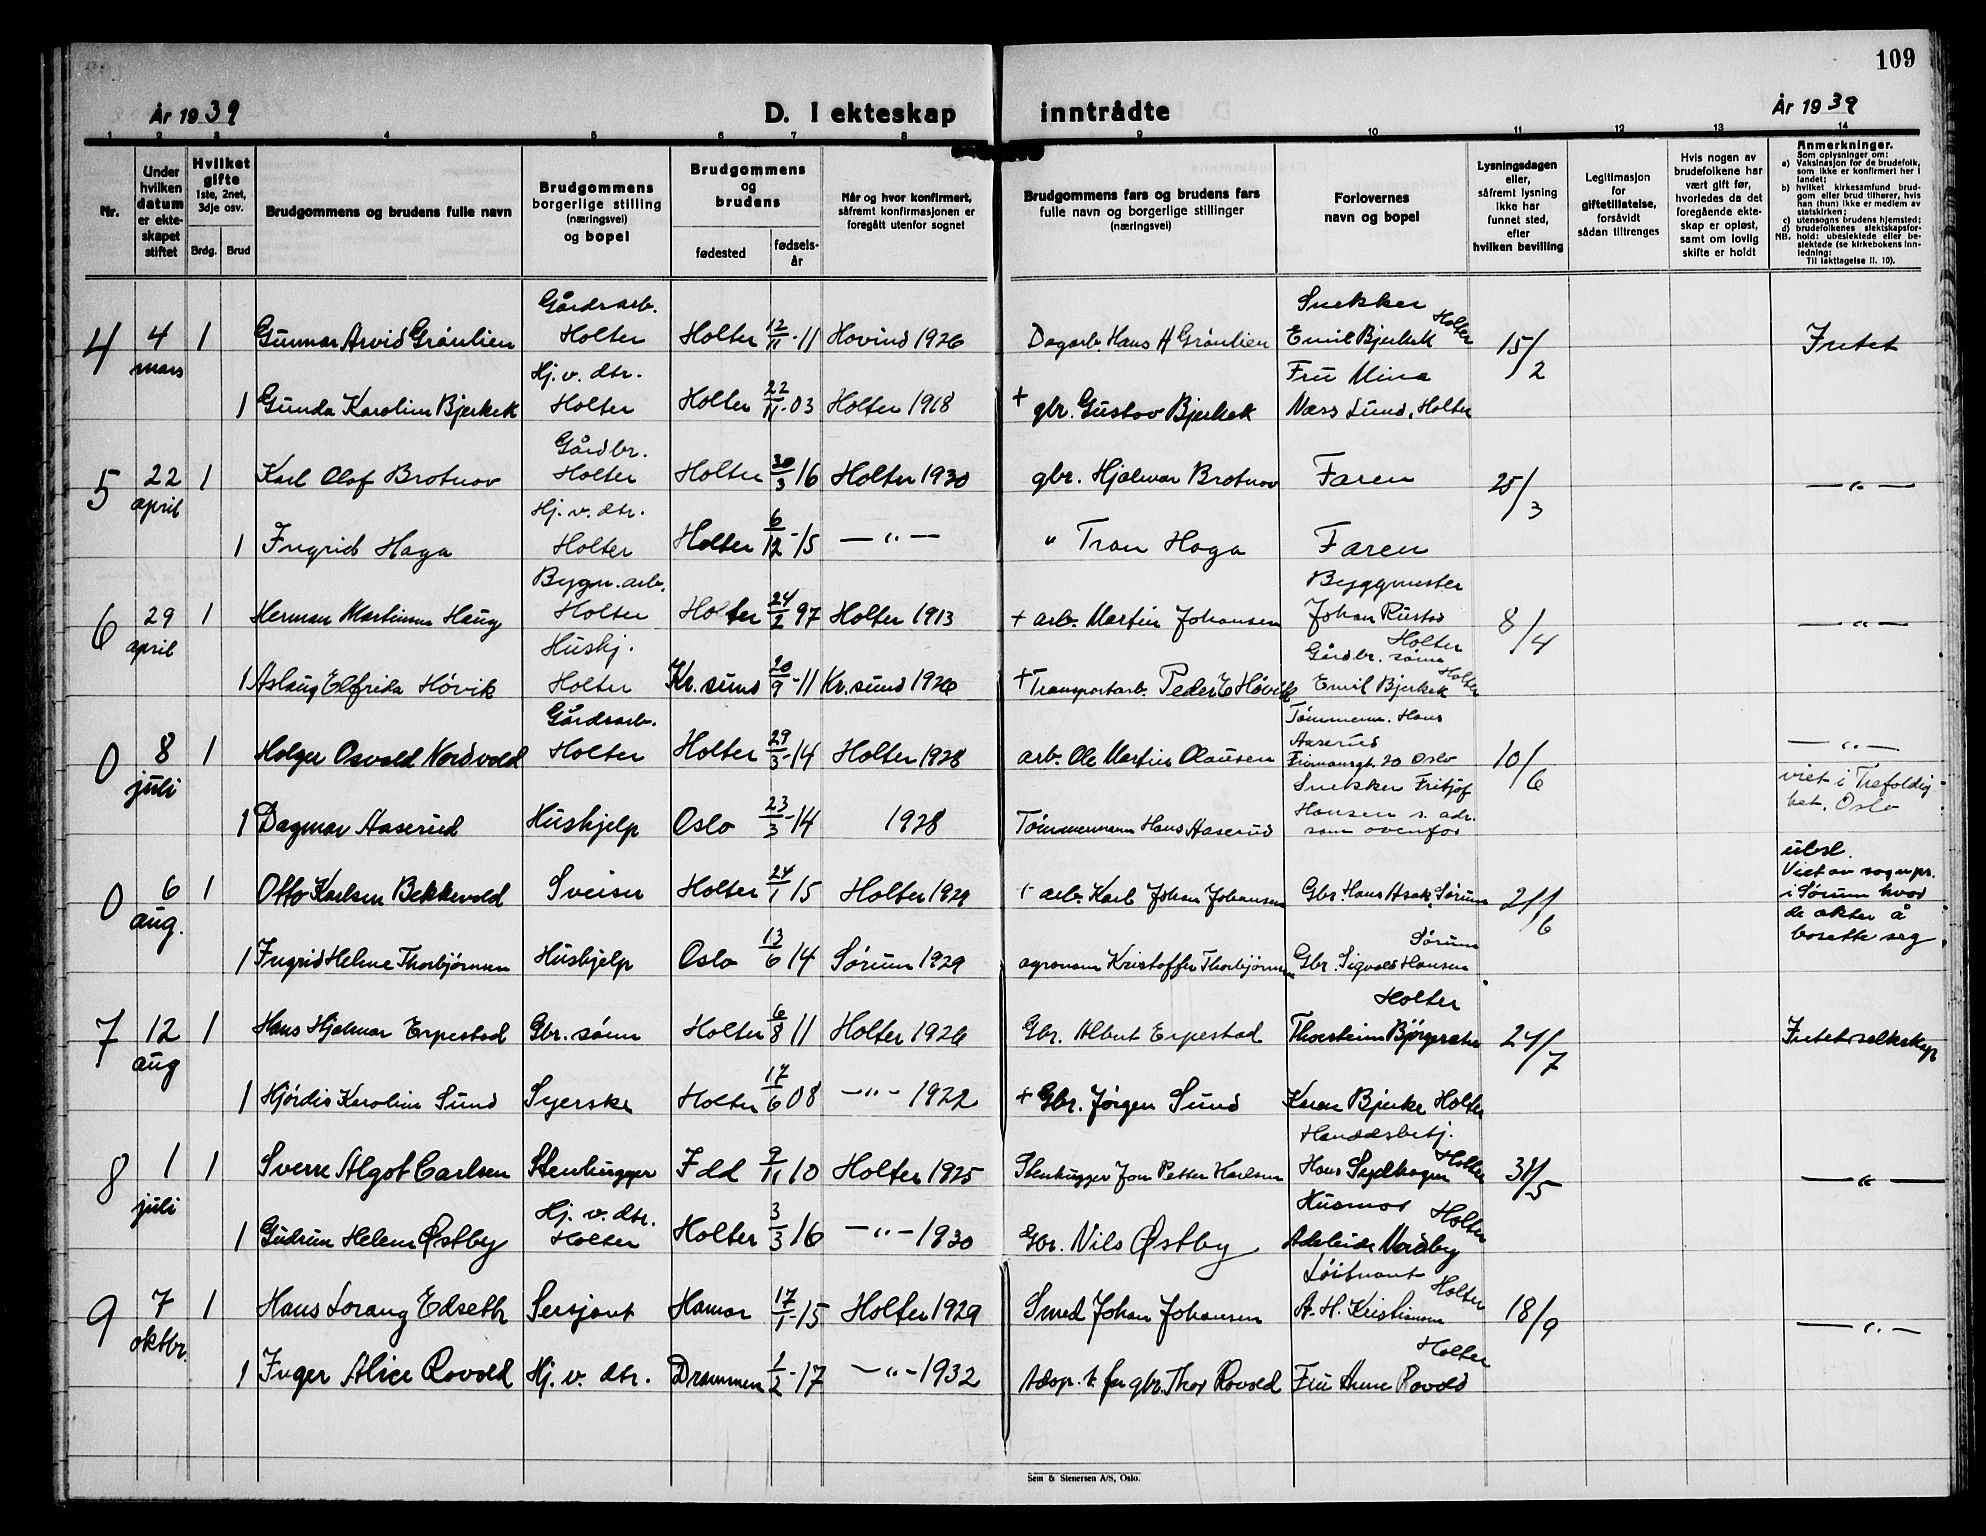 109
År 1939 D. I ekteskap inntrådte År 1939
1 2 3 4 5 6 7 8 9 10 11 12 13 14
Nr.
Under hvilken datum er ekteskapet stiftet
Hvilket gifte 1ste, 2net, 3dje osv.
Brdg. Brud
Brudgommens og brudens fulle navn
Brudgommens borgerlige stilling (næringsvei) og bopel
Brudgommens og brudens
fødested fødselsår
Når og hvor konfirmert, såfremt konfirmasjonen er foregått utenfor sognet
Brudgommens fars og brudens fars fulle navn og borgerlige stillinger (næringsvei)
Forlovernes navn og bopel
Lysningsdagen eller, såfremt lysning ikke har funnet sted, efter hvilken bevilling
Legitimasjon for giftetillatelse, forsåvidt sådan tiltrenges
Hvis nogen av brudefolkene har vært gift før, hvorledes da det foregående ekteskap er opløst, samt om lovlig skifte er holdt
Anmerkninger.
Som oplysninger om:
a) Vaksinasjon for de brudefolk, som ikke er konfirmert her i landet;
b) hvilket kirkesamfund brudgom eller brud tilhører, hvis han (hun) ikke er medlem av statskirken;
c) utensogns brudens hjemsted;
d) brudefolkenes slektskapsforhold: ubeslektede eller beslektede (se kirkebokens innledning:
NB.
Til iakttagelse II. 10).
4 4 mars 1 Gunnar Arvid Grønlien Gårdsarb. Holter Holter 12/11-11 Hovind 1926 Dagarb. Hans A Grønlien Snekker Emil Bjerkek Holter 15/2 Intet
1 Gunda Karoline Bjerkek Hj. v. dtr. Holter Holter 22/11-03 Holter 1918 + gbr. Gustav Bjerkek Fru Mina Næss Lund, Holter
5 22 april 1 Karl Olof Brotnov Gårdbr. Holter Holter 30/3 16 Holter 1930 gbr. Hjalmar Brotnov Faren 25/3 — " —
1 Ingrid Haga Hj. v. dtr. Holter Holter 6/12-15 — " — " Tron Haga Faren
6 29 april 1 Herman Martinsen Haug Bygn. arb. Holter Holter 24/2 97 Holter 1913 + arb. Martin Johansen Byggmester Johan Rustad Holter 8/4 — " —
1 Aslaug Elfrida Høvik Hushj. Holter Kr. sund 20/9-11 Kr. sund 1926 + Transportarb. Peder E Høvik Gårdbr. sønn Emil Bjerkek Holter
0 8 juli 1 Holger Osvald Nordvold Gårdsarb. Holter Holter 29/3-14 Holter 1928 arb. Ole Martin Olausen Tømmerm. Hans Aaserud 20 Oslo 10/6 — " —
viet i Trefoldighet, Oslo
1 Dagmar Aaserud Hushjelp Oslo 23/3-14 1928 Tømmermann Hans Aaserud Snekker Fritjof Hansen s. adr. som ovenfor
0 6 aug. 1 Otto Karlsen Bekkevold Sveiser Holter 24/1 15 Holter 1929 + arb. Karl Johan Johansen Gbr. Hans Asak, Sørum 21/6 ubsl. Viet av sognepr. i Sørum hvor de akter å bosette seg
1 Ingrid Helene Thorbjørnsen Hushjelp Oslo 13/6 14 Sørum 1929 agronom Kristoffer Thorbjørnsen Gbr. Sigvald Hansen Sørum
7 12 aug 1 Hans Hjalmar Erpestad Gbr. sønn Holter 6/8 11 Holter 1926 Gbr. Albert Erpestad Holter Thorstein Bjørgesæter 24/7
1 Hjørdis Karoline Sund Syerske Holter 17/6 08 — " — 1922 + Gbr. Jørgen Sund Karen Bjerke Holter
8 1 juli 1 Sverre Algot Carlsen Stenhugger Idd 9/11 10 Holter 1925 Stenhugger Jon Petter Karlsen Handelsbetj. Hans Sydhagen Holter 31/5 — " —
1 Gudrun Helene Østby Hj. v. dtr. Holter Holter 3/3 16 — " — 1930 Gbr. Nils Østby Husmor Adeleide Nordby Holter
9 7 oktbr. 1 Hans Lorang Edseth Sersjant Hamar 17/1-15 Holter 1929 Smed Johan Johansen Løitnant A. H. Kristiansen Holter 18/9 — " —
1 Inger Alice Rovold Hj. v. dtr. Drammen 1/2-17 — " — 1932 Adop. t. far gbr. Thor Rovold Fru Anne Rovold Holter
Sem & Stenersen A/S, Oslo.